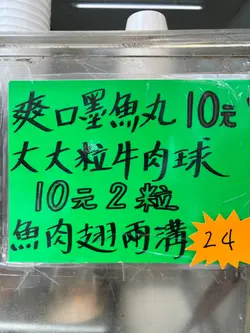 爽口墨魚丸10元
大大粒牛肉球
10元2粒
魚肉翅兩溝 24